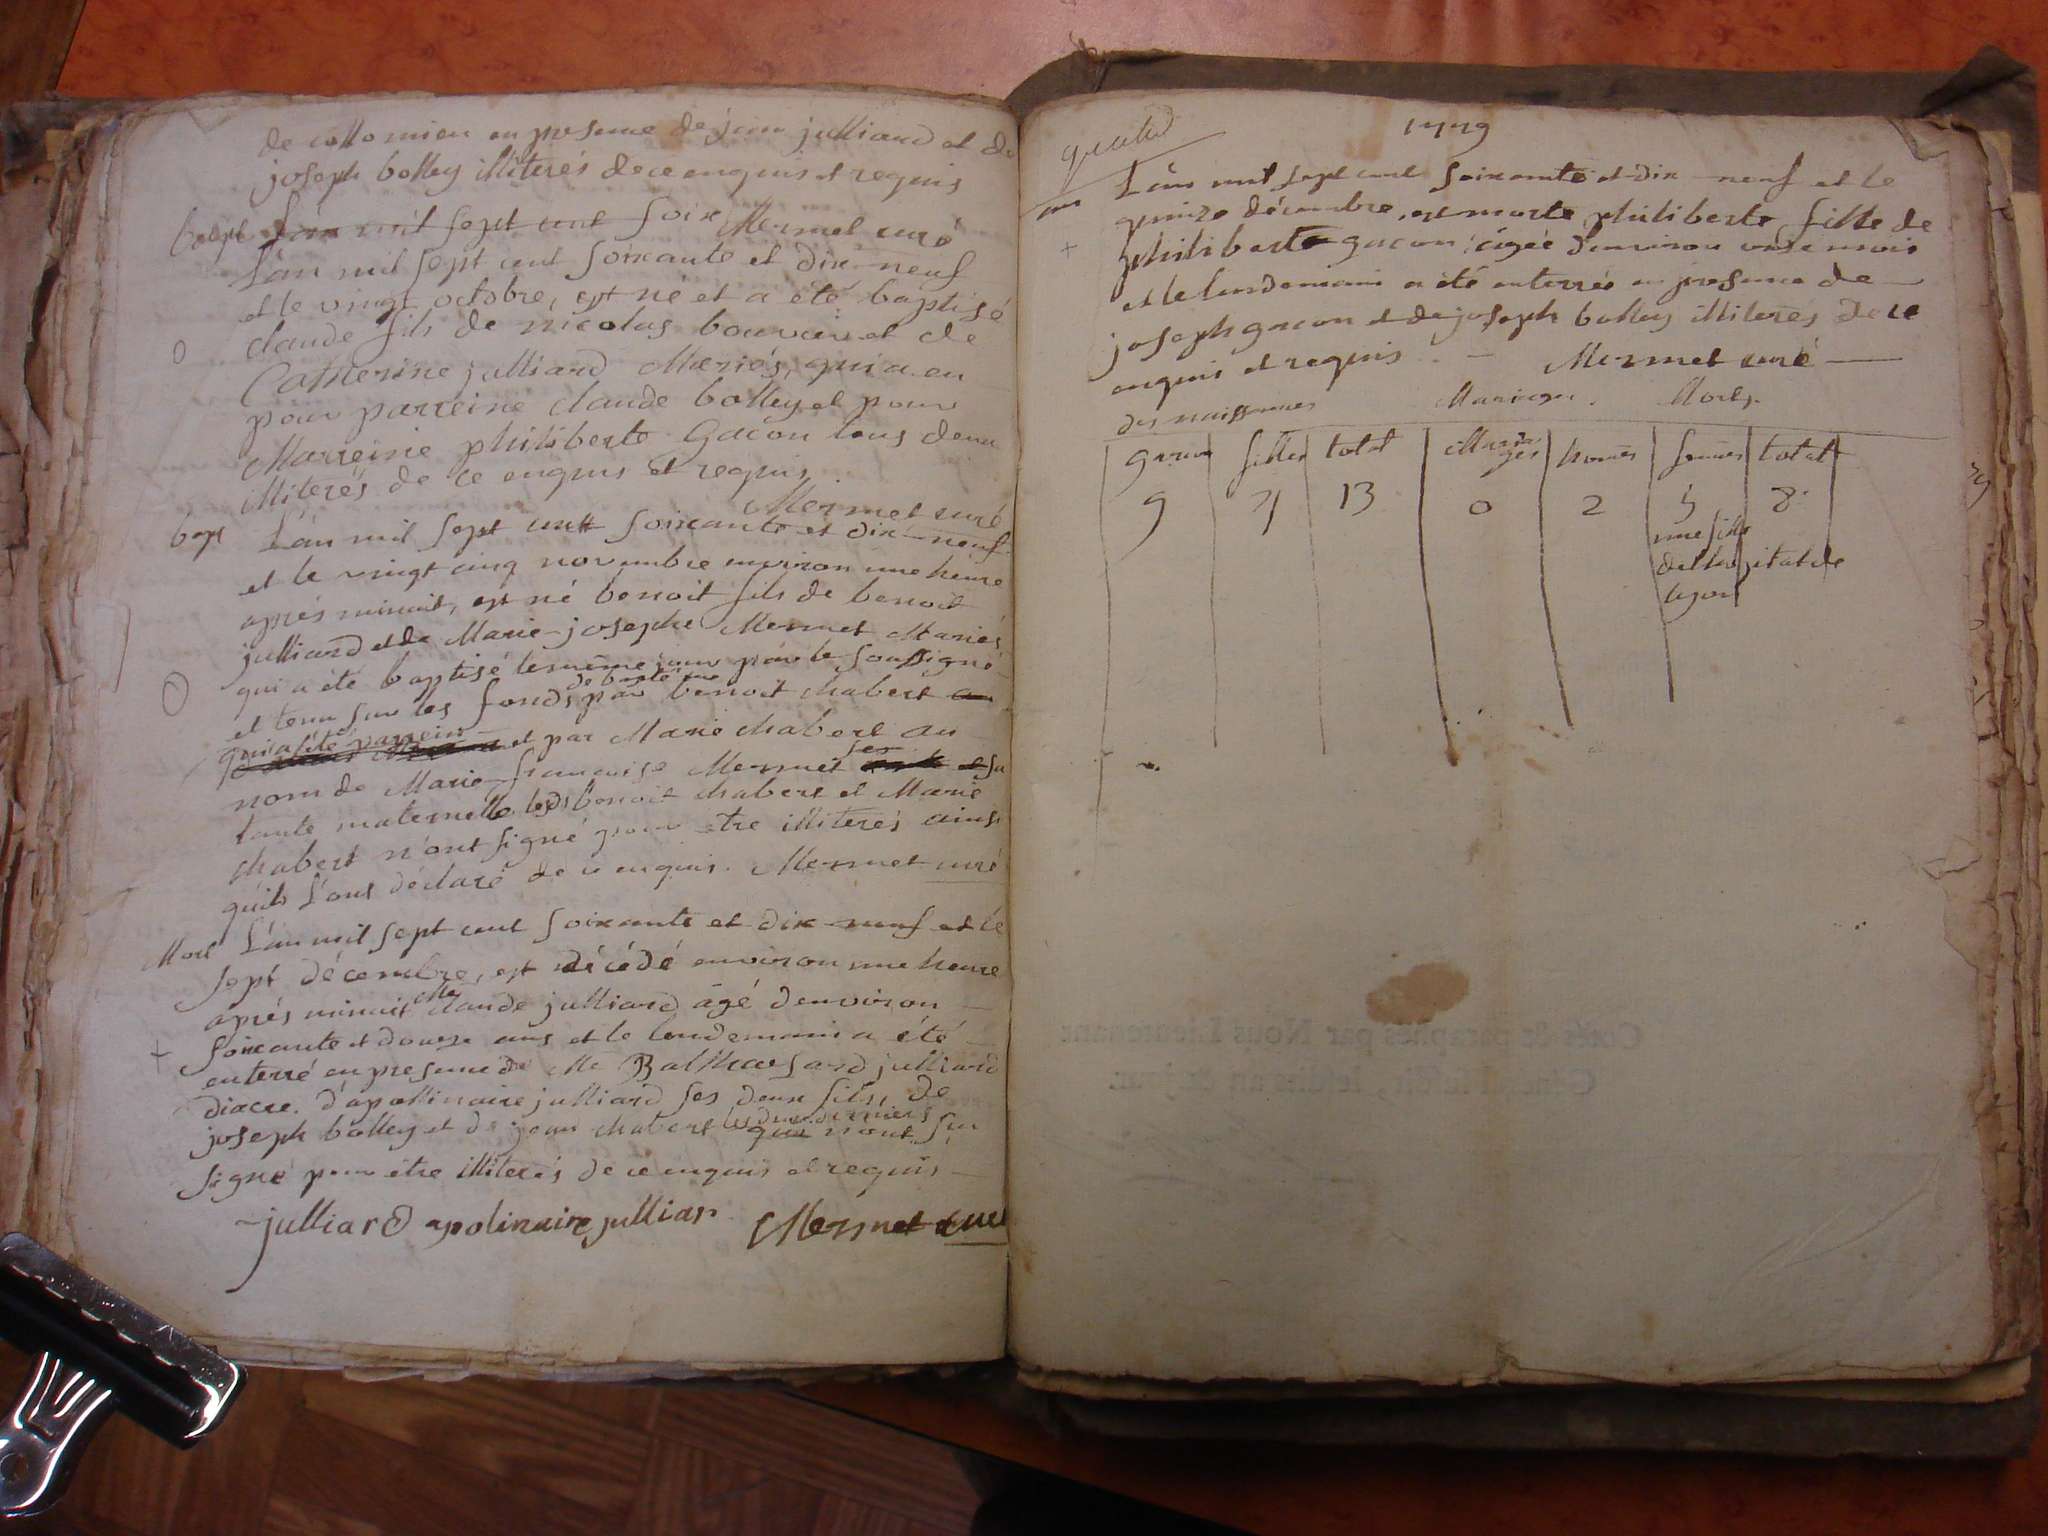 de collomieu en presence de jean julliard et de
joseph bolley illiterés de ce enquis et requis
Mermet curé
bapt L'an mil sept cent soix
L'an mil sept cent soixante et dix-neuf
et le vingt octobre, est né et a été baptisé
claude fils de nicolas bouvier et de
Catherine julliard Mariés, qui a eu
pour parreine claude bolley et pour
Marreine philiberte Gacon tous deux
illiterés de ce enquis et requis
Mermet curé
bapt L'an mil sept cent soixante et dix-neuf
et le vingt cinq novembre environ une heure
aprés minuit, est né benoit fils de benoit
julliard et de Marie-josephe Mermet Mariés
qui a été baptisé le même jour par le soussigné
et tenu sur les fonds par benoit chabert
qui a été parrein et par Marie chabert au
nom de Marie-francoise Mermet sa
tante maternelle lesds benoit chabert et Marie
chabert n'ont signé pour etre illiterés ainsi
quils l'ont déclaré de ce enquis. Mermet curé
Mort L'an mil sept cent soixante et dix-neuf et le
sept décembre, est décédé environ une heure
aprés minuit Me claude julliard âgé d'environ
soixante et douze ans et le lendemain a été
enterré en presence de Me Balthasard julliard
diacre. d'apollinaire julliard ses deux fils, de
joseph bolley et de jean chabert les deux derniers
qui n'ont su
signé pour être illiterés de ce enquis et requis
julliard apolinaire julliar Mermet curé
1779
L'an mil sept cent soixante et dix-neuf et le
quinze décembre, est morte philiberte, fille de
philiberte gacon âgée d'environ onze mois
et le lendemain a été enterrée en presence de
joseph gacon et de joseph bolley illiterés de ce
enquis et requis - Mermet curé
des naissances Mariages. Morts.
garcon filles total Mariages homes femes total
9 4 13 0 2 5 8
une fille
de l'hopital de
lyon